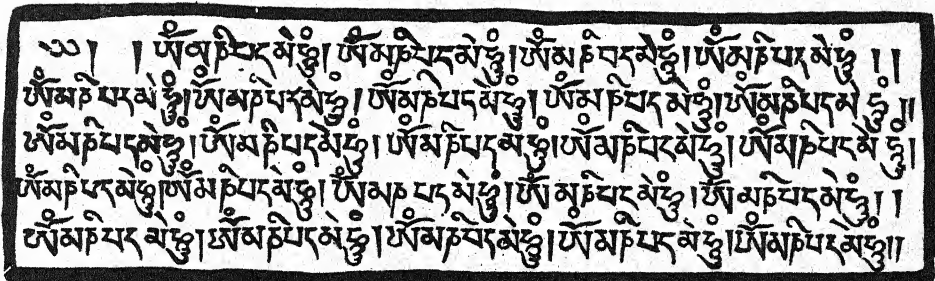 ༄༅། ། ཨོཾམཎིཔདམེཧཱུཾ།ཨོཾམཎིཔདམེཧཱུཾ།ཨོཾམཎིཔདམེཧཱུཾ།ཨོཾམཎིཔདམེཧཱུཾ །།
ཨོཾམཎིཔདམེཧཱུཾ།ཨོཾམཎིཔདམེཧཱུཾ།ཨོཾམཎིཔདམེཧཱུཾ།ཨོཾམཎིཔདམེཧཱུཾ།ཨོཾམཎིཔདམེཧཱུཾ།།
ཨོཾམཎིཔདམེཧཱུཾ།ཨོཾམཎིཔདམེཧཱུཾ།ཨོཾམཎིཔདམེཧཱུཾ།ཨོཾམཎིཔདམེཧཱུཾ།ཨོཾམཎིཔདམེཧཱུཾ།
ཨོཾམཎིཔདམེཧཱུཾ།ཨོཾམཎིཔདམེཧཱུཾ།ཨོཾམཎིཔདམེཧཱུཾ།ཨོཾམཎིཔདམེཧཱུཾ།ཨོཾམཎིཔདམེཧཱུཾ།།
ཨོཾམཎིཔདམེཧཱུཾ།ཨོཾམཎིཔདམེཧཱུཾ།ཨོཾམཎིཔདམེཧཱུཾ།ཨོཾམཎིཔདམེཧཱུཾ།ཨོཾམཎིཔདམེཧཱུཾ།།